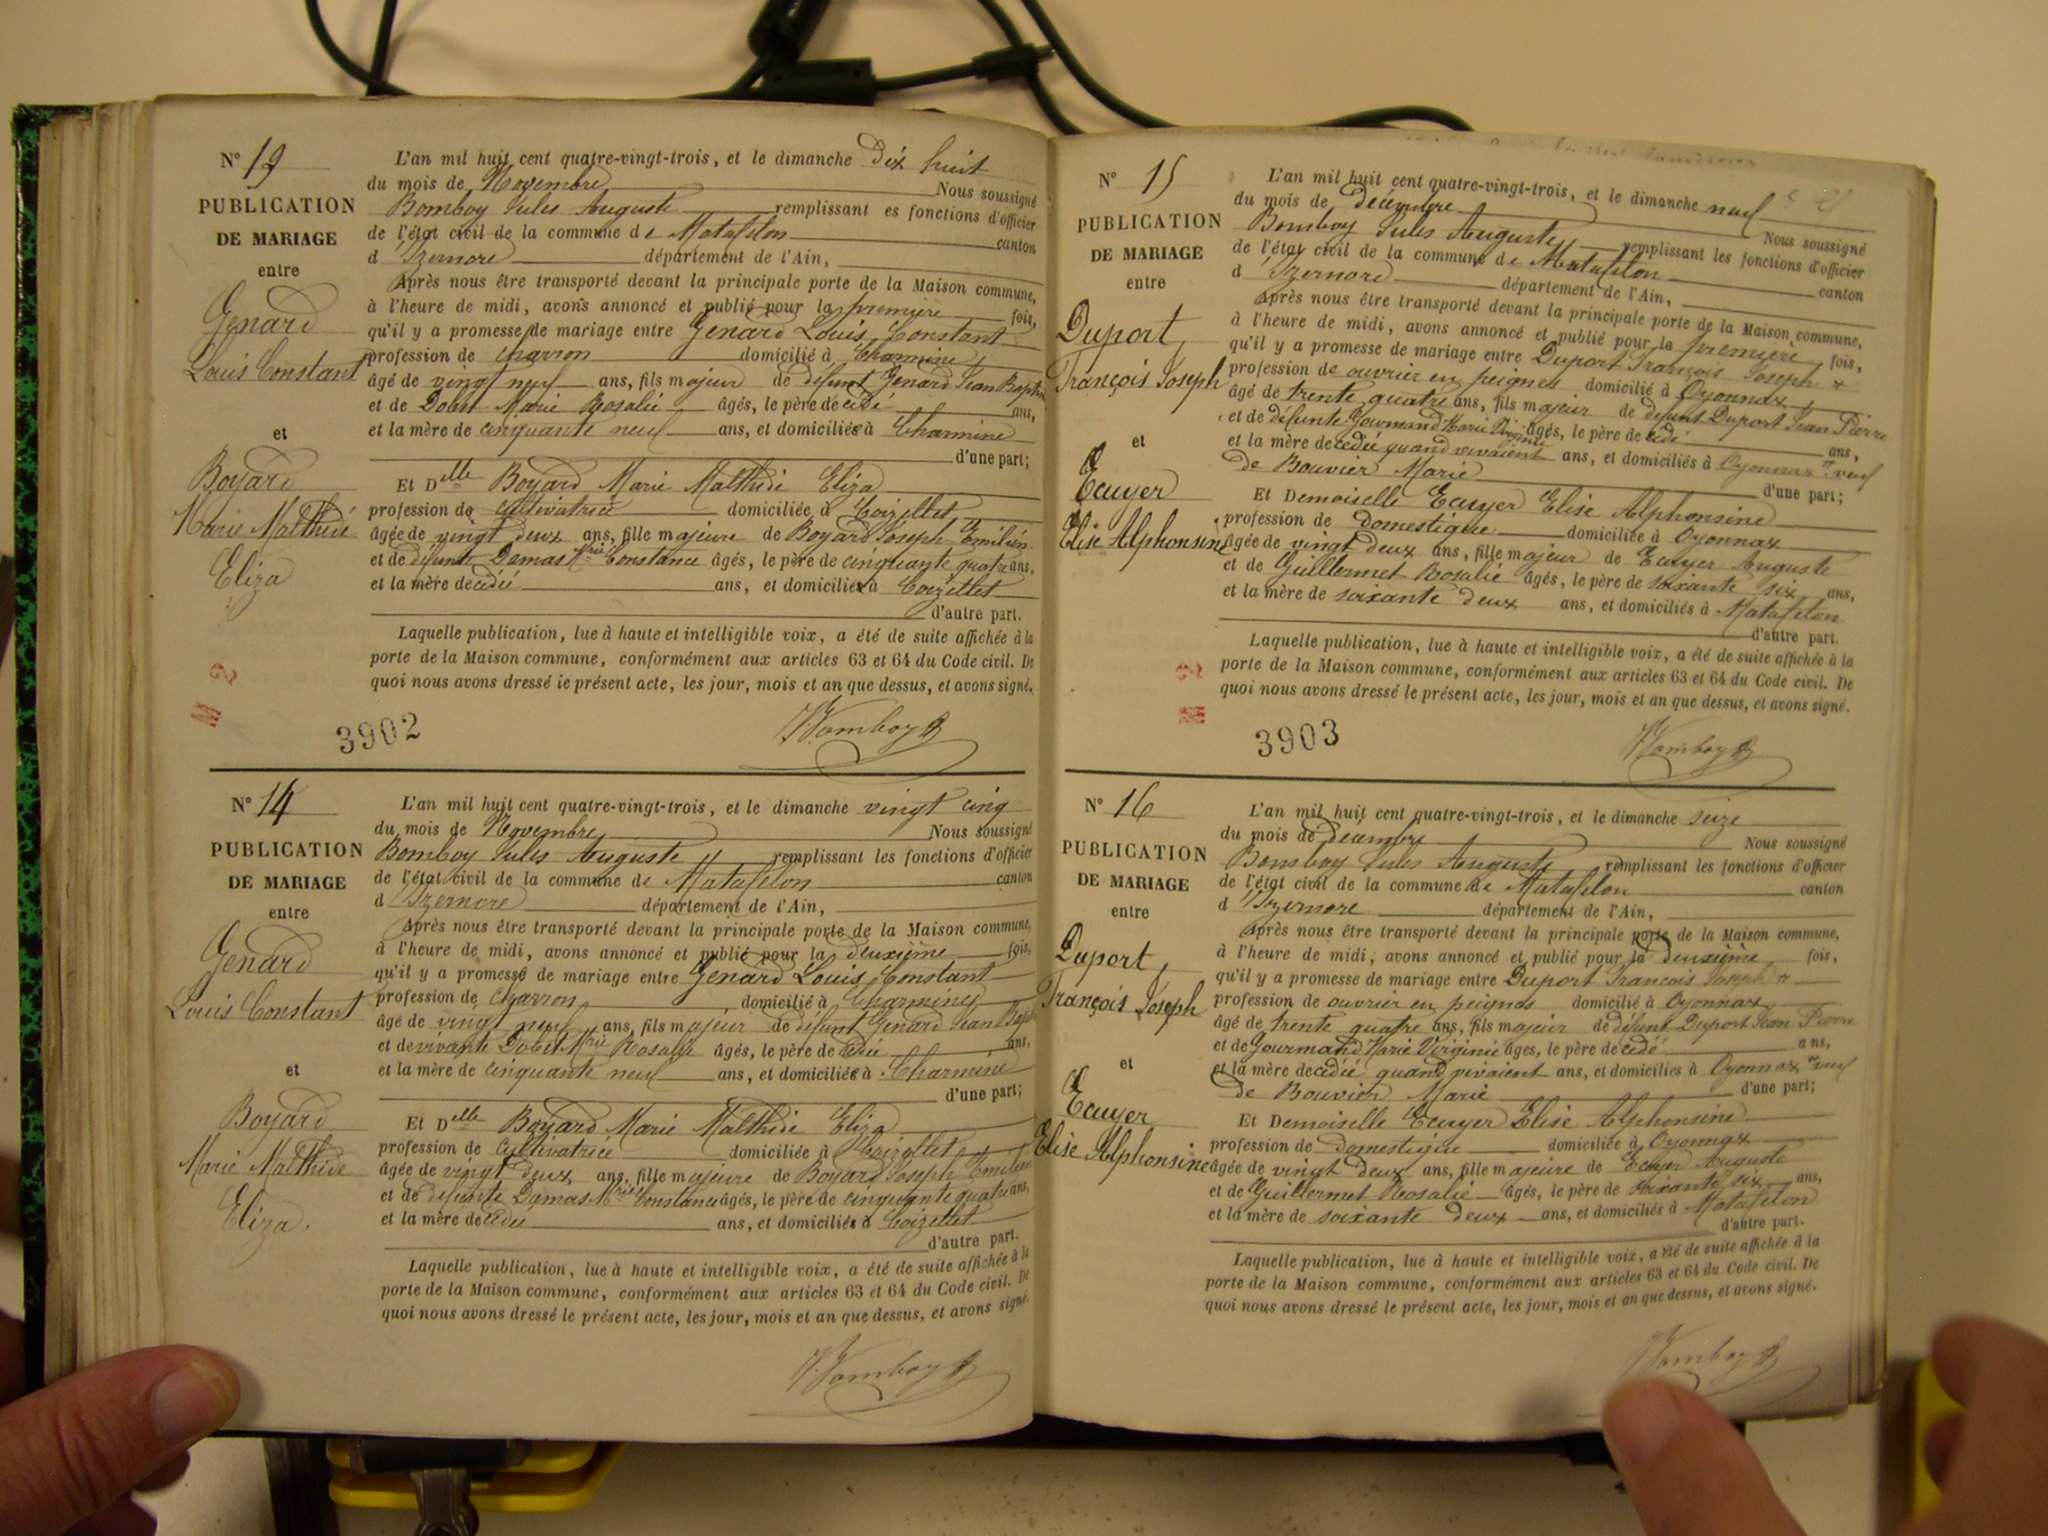 N° 13
PUBLICATION
DE MARIAGE
entre
Genard
Louis Constant
et
Boyard
Marie Malthide
Eliza
L'an mil huit cent quatre-vingt-trois, et le dimanche Dix huit
du mois de Novembre Nous soussigné
Bomboy Jules Auguste remplissant es fonctions d'officier
de l'état civil de la commune de Matafelon canton
d'Izernore département de l'Ain,
Après nous être transporté devant la principale porte de la Maison commune,
à l'heure de midi, avons annoncé et publié pour la première fois,
qu'il y a promesse de mariage entre Genard Louis Constant
profession de charron domicilié à Charmine
âgé de vingt neuf ans, fils majeur de défunt Genard Jean Baptiste
et de Dobet Marie Rosalie âgés, le père décédé ans,
et la mère de cinquante neuf ans, et domiciliés à Charmine
d'une part;
Et Delle Boyard Marie Malthide Eliza
profession de cultivatrice domiciliée à Coizellet
âgée de vingt deux ans, fille majeure de Boyard Joseph Emilien
et de défunte Damas Mrie Constance âgés, le père de cinquante quatre ans,
et la mère décédée ans, et domiciliés à Coizellet
d'autre part.
Laquelle publication, lue à haute et intelligible voix, a été de suite affichée à la
porte de la Maison commune, conformément aux articles 63 et 64 du Code civil. De
quoi nous avons dressé le présent acte, les jour, mois et an que dessus, et avons signé.
3902
JBomboy
N° 14
PUBLICATION
DE MARIAGE
entre
Genard
Louis Constant
et
Boyard
Marie Malthide
Eliza.
L'an mil huit cent quatre-vingt-trois, et le dimanche vingt cinq
du mois de Novembre Nous soussigné
Bomboy Jules Auguste remplissant les fonctions d'officier
de l'état civil de la commune de Matafelon canton
d'Izernore département de l'Ain,
Après nous être transporté devant la principale porte de la Maison commune,
à l'heure de midi, avons annoncé et publié pour la deuxième fois,
qu'il y a promesse de mariage entre Genard Louis Constant
profession de charron domicilié à Charmine
âgé de vingt neuf ans, fils majeur de défunt Genard Jean Bapt
et de vivante Dobet Mrie Rosalie âgés, le père décédé ans,
et la mère de cinquante neuf ans, et domiciliés à Charmine
d'une part;
Et Delle Boyard Marie Malthide Eliza
profession de cultivatrice domiciliée à Coizellet
âgée de vingt deux ans, fille majeure de Boyard Joseph Emilien
et de défunte Damas Mrie Constance âgés, le père de cinquante quatre ans,
et la mère décédée ans, et domiciliés à Coizellet
d'autre part.
Laquelle publication, lue à haute et intelligible voix, a été de suite affichée à la
porte de la Maison commune, conformément aux articles 63 et 64 du Code civil. De
quoi nous avons dressé le présent acte, les jour, mois et an que dessus, et avons signé.
JBomboy
N° 15
PUBLICATION
DE MARIAGE
entre
Duport
François Joseph
et
Ecuyer
Elise Alphonsine
L'an mil huit cent quatre-vingt-trois, et le dimanche neuf
du mois de décembre Nous soussigné
Bomboy Jules Auguste remplissant les fonctions d'officier
de l'état civil de la commune de Matafelon canton
d'Izernore département de l'Ain,
Après nous être transporté devant la principale porte de la Maison commune,
à l'heure de midi, avons annoncé et publié pour la première fois,
qu'il y a promesse de mariage entre Duport François Joseph
profession de ouvrier en peignes domicilié à Oyonnax
âgé de trente quatre ans, fils majeur de défunt Duport Jean Pierre
et de défunte Gourmand Marie Virginie âgés, le père décédé ans,
et la mère décédée quand vivaient ans, et domiciliés à Oyonnax veuf
de Bouvier Marie d'une part;
Et Demoiselle Ecuyer Elise Alphonsine
profession de domestique domiciliée à Oyonnax
âgée de vingt deux ans, fille majeur de Ecuyer Auguste
et de Guillermet Rosalie âgés, le père de soixante six ans,
et la mère de soixante deux ans, et domiciliés à Matafelon
d'autre part.
Laquelle publication, lue à haute et intelligible voix, a été de suite affichée à la
porte de la Maison commune, conformément aux articles 63 et 64 du Code civil. De
quoi nous avons dressé le présent acte, les jour, mois et an que dessus, et avons signé.
3903
JBomboy
N° 16
PUBLICATION
DE MARIAGE
entre
Duport
François Joseph
et
Ecuyer
Elise Alphonsine
L'an mil huit cent quatre-vingt-trois, et le dimanche seize
du mois de décembre Nous soussigné
Bomboy Jules Auguste remplissant les fonctions d'officier
de l'état civil de la commune de Matafelon canton
d'Izernore département de l'Ain,
Après nous être transporté devant la principale porte de la Maison commune,
à l'heure de midi, avons annoncé et publié pour la deuxième fois,
qu'il y a promesse de mariage entre Duport François Joseph
profession de ouvrier en peignes domicilié à Oyonnax
âgé de trente quatre ans, fils majeur de défunt Duport Jean Pierre
et de Gourmand Marie Virginie âgés, le père décédé ans,
et la mère décédée quand vivaient ans, et domiciliés à Oyonnax veuf
de Bouvier Marie d'une part;
Et Demoiselle Ecuyer Elise Alphonsine
profession de domestique domiciliée à Oyonnax
âgée de vingt deux ans, fille majeure de Ecuyer Auguste
et de Guillermet Rosalie âgés, le père de soixante six ans,
et la mère de soixante deux ans, et domiciliés à Matafelon
d'autre part.
Laquelle publication, lue à haute et intelligible voix, a été de suite affichée à la
porte de la Maison commune, conformément aux articles 63 et 64 du Code civil. De
quoi nous avons dressé le présent acte, les jour, mois et an que dessus, et avons signé.
JBomboy